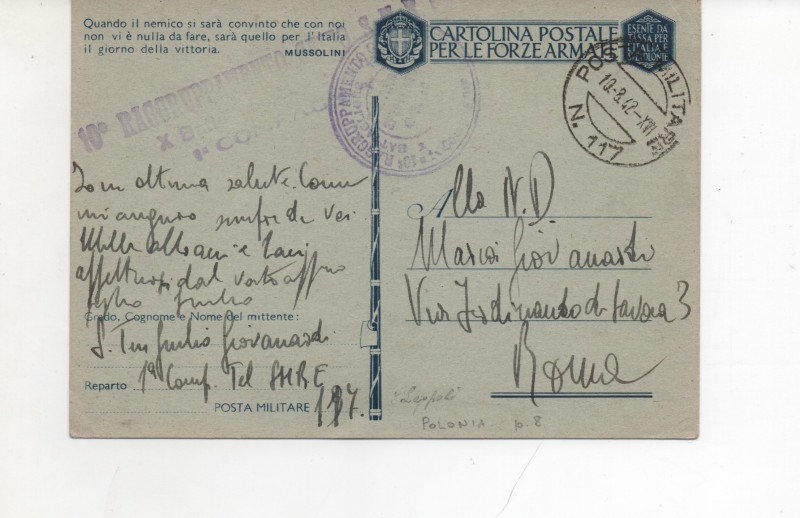 Quando il nemico si sarà convinto che con noi
non vi è nulla da fare, sarà quello per l'Italia
il giorno della vittoria. MUSSOLINI
CARTOLINA POSTALE
PER LE FORZE ARMATE
ESENTE DA
TASSA PER
L'ITALIA E
COLONIE
10° RAGGRUPPAMENTO
X
1ª
10° RAGGRUPPAMENTO
X BAT
POSTA MILITARE
10-8-42-XX
N. 117
Sono ottima salute. Come
mi auguro sempre di voi
Mille abbracci e baci
affettuosi dal vostro
figlio Giulio
Grado, Cognome e Nome del mittente:
S. Ten Giulio Giovanardi
1ª Comp. Tel
Reparto
POSTA MILITARE 117.
Alla N.D
Giovanardi
Via Ferdinando di Savoia 3
Roma
Leopoli
POLONIA p. 8